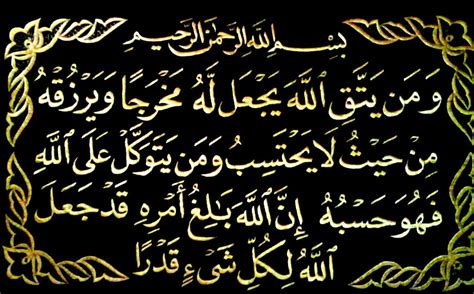 بِسْمِ اللَّهِ الرَّحْمَٰنِ الرَّحِيمِ
وَمَن يَتَّقِ ٱللَّهَ يَجْعَل لَّهُ مَخْرَجًا وَيَرْزُقْهُ
مِنْ حَيْثُ لَا يَحْتَسِبُ وَمَن يَتَوَكَّلْ عَلَى ٱللَّهِ
فَهُوَ حَسْبُهُ إِنَّ ٱللَّهَ بَالِغُ أَمْرِهِ قَدْ جَعَلَ
ٱللَّهُ لِكُلِّ شَيْءٍ قَدْرًا